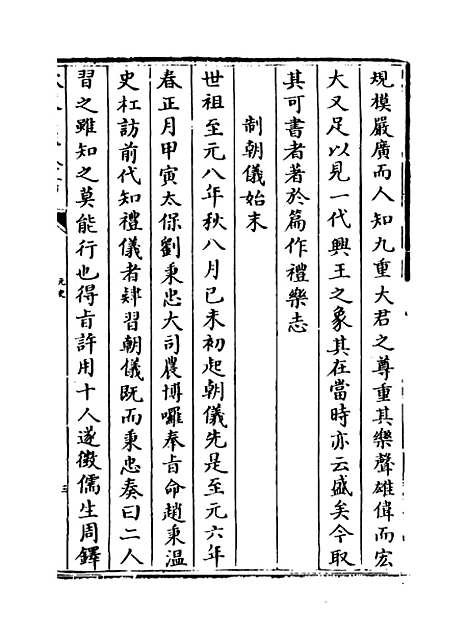 規模嚴廣而人知九重大君之尊重其樂聲雄偉而宏
大又足以見一代興王之象其在當時亦云盛矣今取
其可書者著於篇作禮樂志
制朝儀始末
世祖至元八年秋八月已未初起朝儀先是至元六年
春正月甲寅太保劉秉忠大司農博囉奉㫖命趙秉温
史杠訪前代知禮儀者肄習朝儀既而秉忠奏曰二人
習之雖知之莫能行也得㫖許用十人遂徴儒生周鐸
元史
三